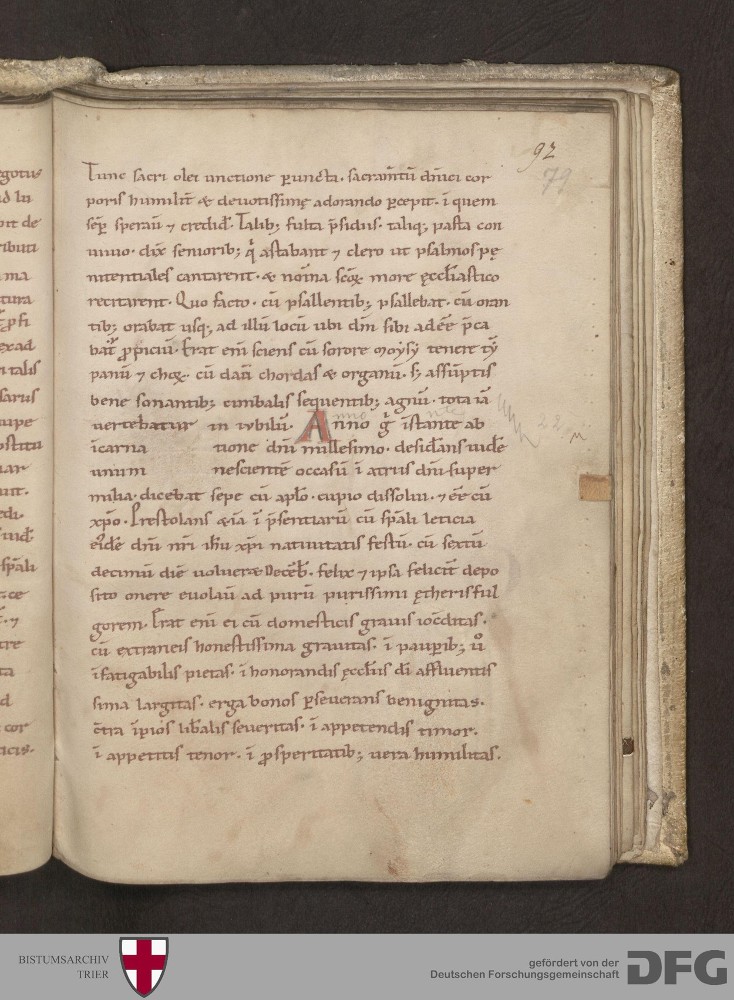 92
79
Tunc sacri olei unctione peruncta. sacramtū dnici cor
poris humilit̄ & deuotissimę adorando pcepit. ī quem
semp sperauit ⁊ credid̄. Talib; fulta p̄sidiis. taliq; pasta con
uiuio. dix̄ seniorib; q̄ astabant ⁊ clero ut psalmos pę
nitentiales cantarent. & noīna scōꝝ more ęccl̄iastico
recitarent. Quo facto. cū psallentib; psallebat. cū oran
tib; orabat usq; ad illū locū ubi dm̄ sibi adeē p̄ca
bat᷑ ꝓpiciū. Erat enī sciens cū sorore moysy tenere ty̅
panū ⁊ choꝝ. cū dauid chordas & organū. s; assūptis
bene sonantib; cimbalis sequentib; agnū. tota iā
uertebatur in iubilū. Anno g̊ īstante ab
īcarna tione dnī millesimo. desid̄ans uidē
unum nescientē occasū ī atriis dnī super
milia. dicebat sepe cū apl̄o. cupio dissolui. ⁊ eē cū
xp̄o. Prestolans &iā ī p̄sentiarū cū sp̄ali leticia
eidē dnī nr̄i ihū xp̄i natiuitatis festū. cū sextū
decimū diē uoluer& Decēb̄. felix ⁊ ipsa felicit̄ depo
sito onere euolauit ad purū purissimi ętheris ful
gorem. Erat enī ei cū domesticis grauis iocūditas.
cū extraneis honestissima grauitas. ī paupib; ů
īfatigabilis pietas. ī honorandis ęccl̄iis dī affluentis
sima largitas. erga bonos pseuerans benignitas.
c̄tra īpios lib̄alis seueritas. ī appetendis timor.
ī appetitis tenor. ī ꝓsperitatib; uera humilitas.
BISTUMSARCHIV
TRIER
gefördert von der
Deutschen Forschungsgemeinschaft
DFG